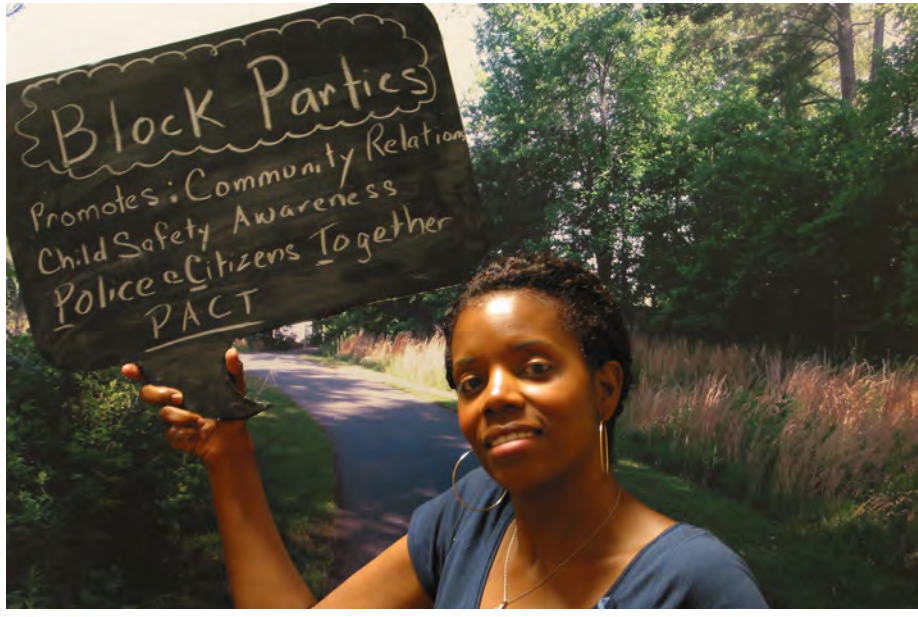 Block Parties
Promotes: Community Relation
Child Safety Awareness
Police & Citizens Together
PACT